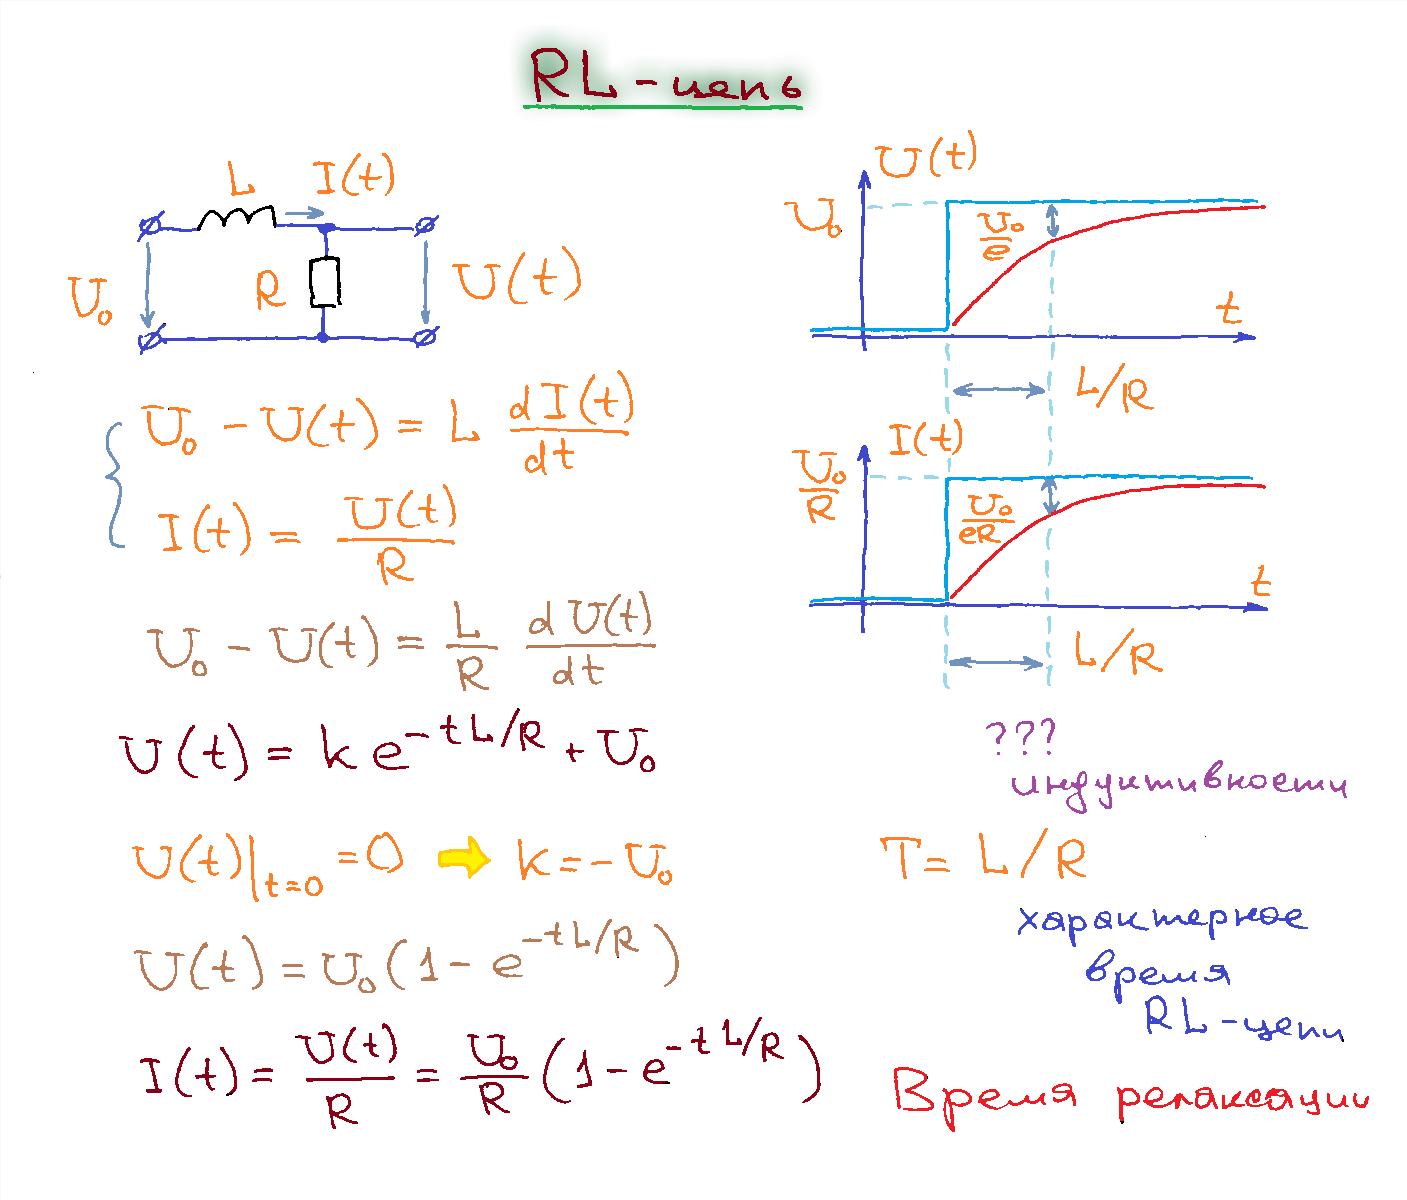 RL-цепь
L I(t)
U₀ R U(t)
U₀ - U(t) = L dI(t)/dt
I(t) = U(t)/R
U₀ - U(t) = L/R dU(t)/dt
U(t) = k e^(-tL/R) + U₀
U(t)|t=0 = 0 ➡ k = -U₀
U(t) = U₀(1 - e^(-tL/R))
I(t) = U(t)/R = U₀/R (1 - e^(-tL/R))
U(t)
U₀ U₀/e
t
L/R
I(t)
U₀/R U₀/eR
t
L/R
???
индуктивности
T = L/R
характерное
время
RL-цепи
Время релаксации